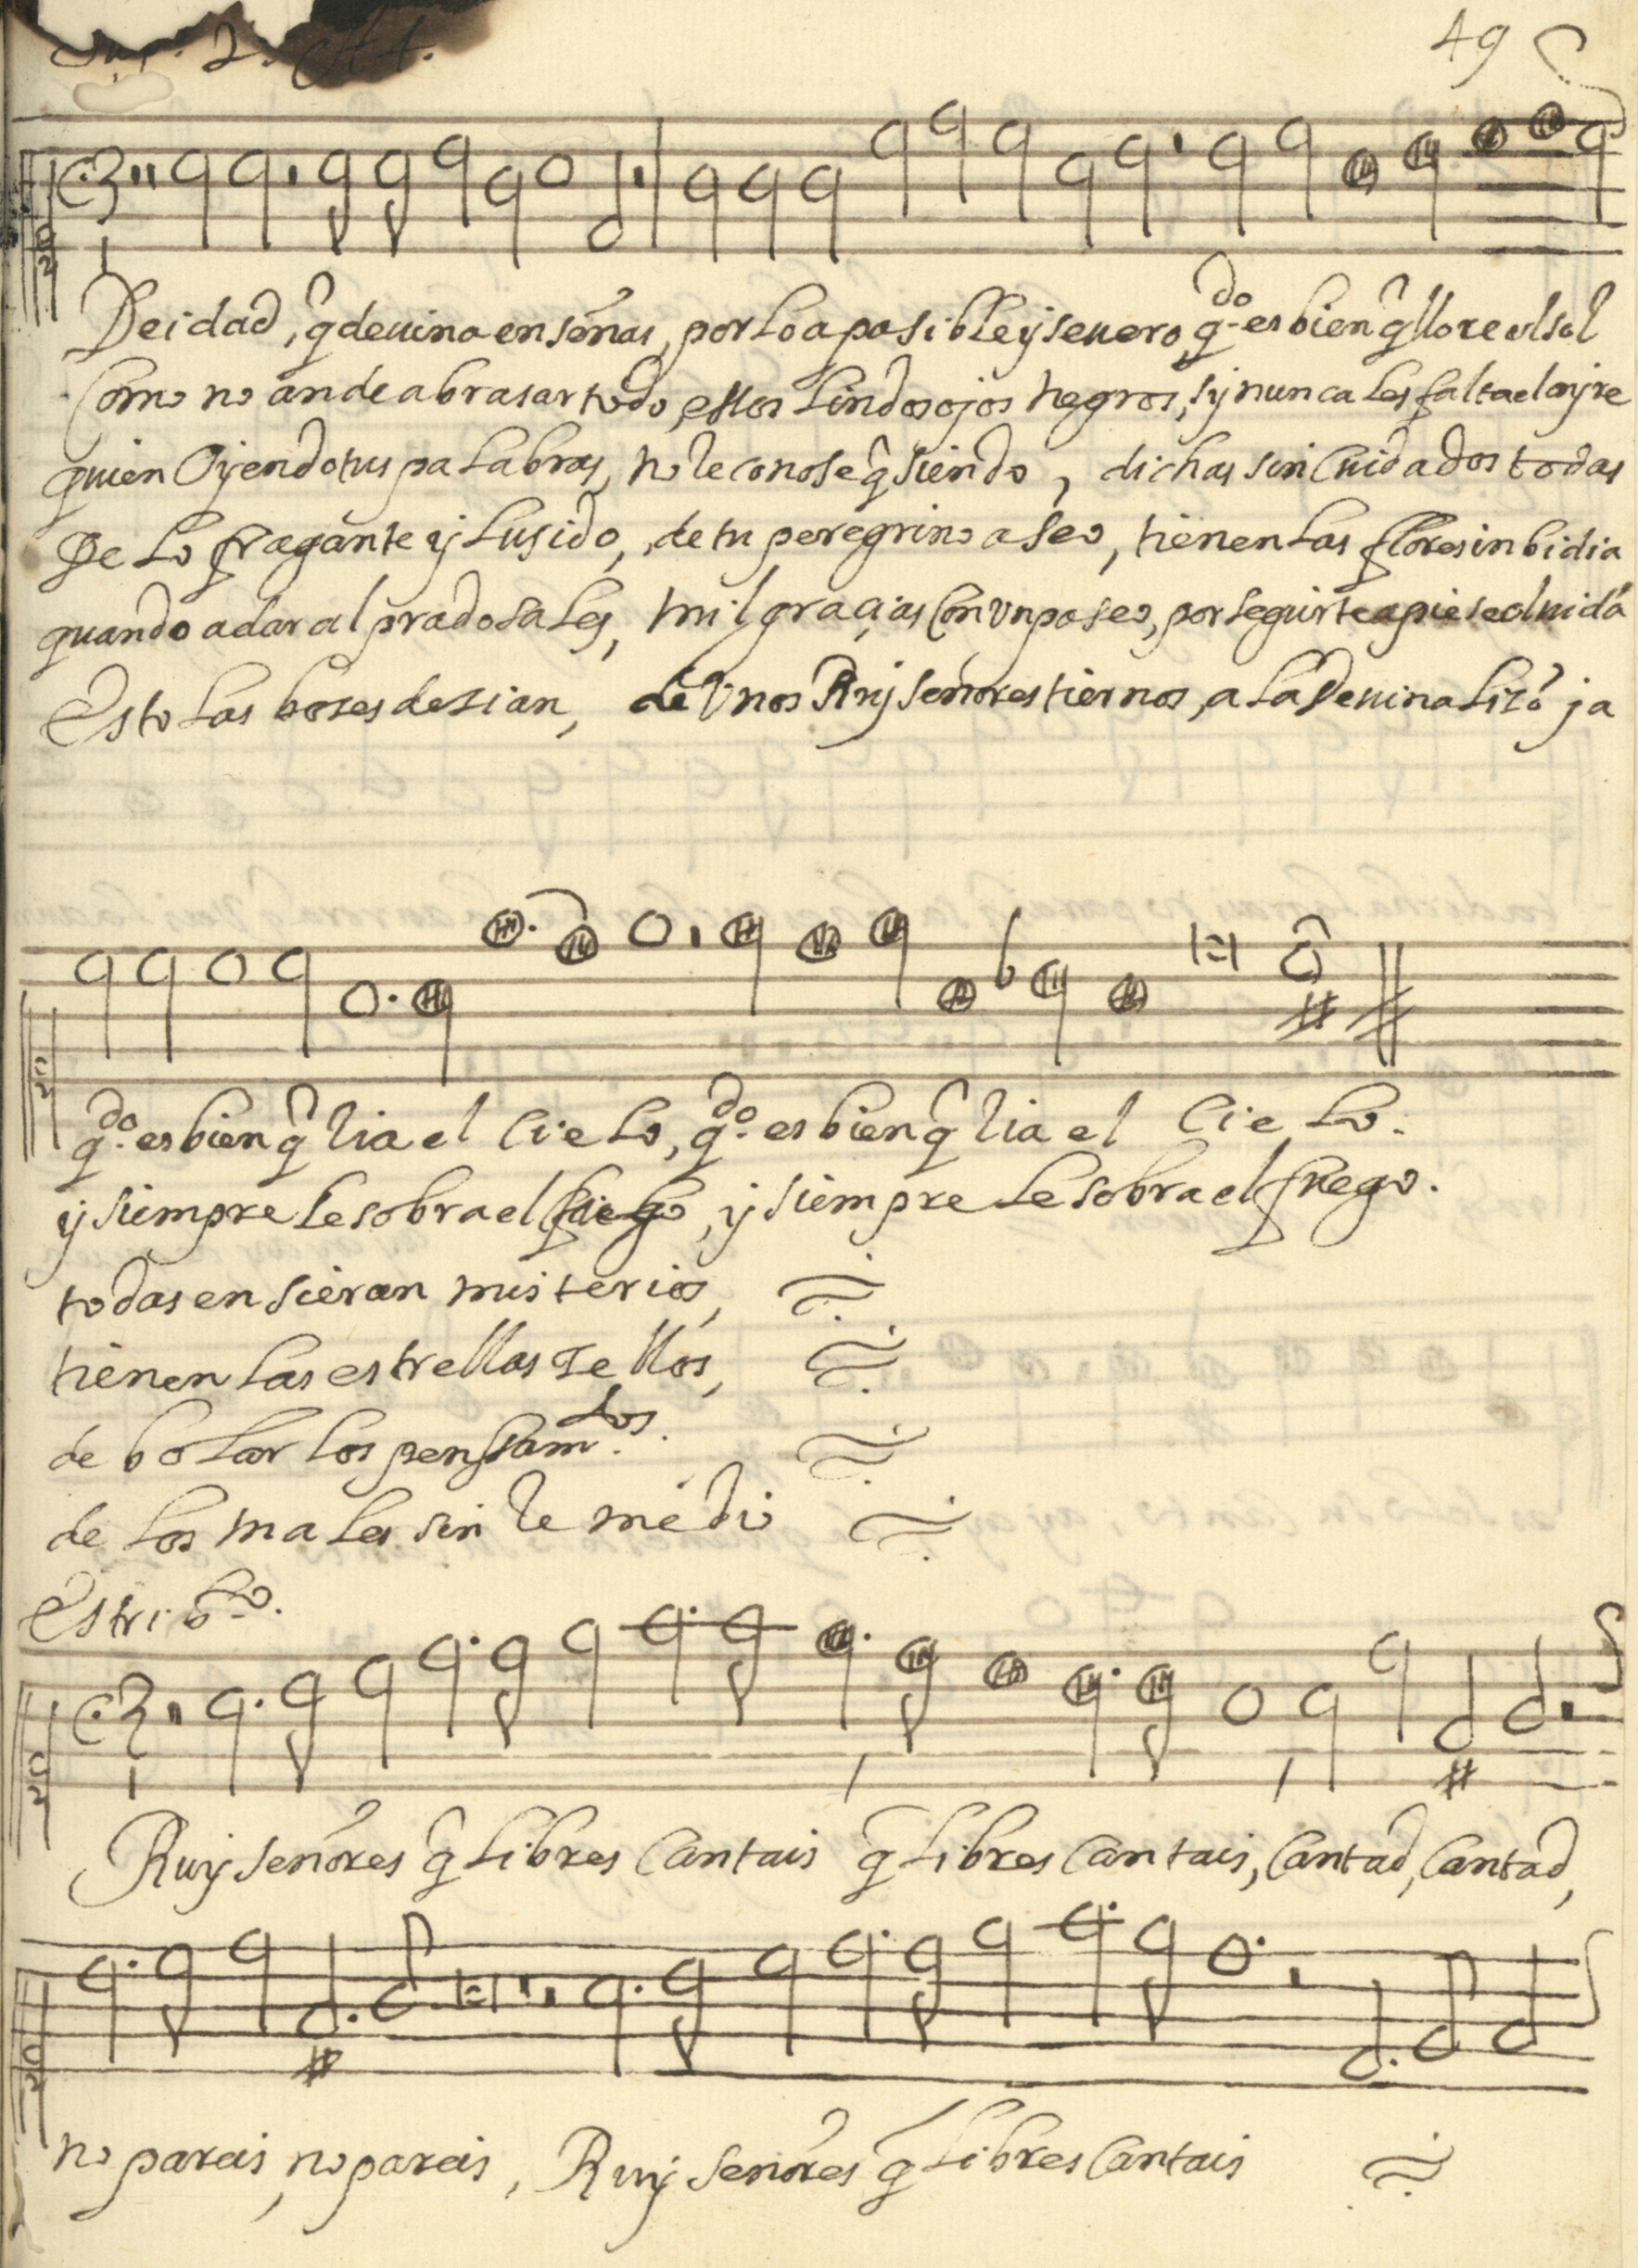 2. A 4.
49
Deidad, q̃ deuina enseñas, por lo apasible y seuero, q.do es bien q̃ llore el sol
Como no an de abrasar todo, essos lindos ojos negros, sy nunca les falta el ayre
quien Oyendo tus palabras, no le conose q̃ siendo, dichas sin Cuidados todas
De lo fragante y lusido, de tu peregrino aseo, tienen las flores inbidia
quando a dar al prado sales, mil graçias Con Vn paseo, por seguirte a pie se oluidã
Esto las boses desian, de Vnos Ruyseñores tiernos, a la Deuina
q.do es bien q̃ ria el Cielo, q.do es bien q̃ ria el Cielo.
y siempre le sobra el fuego, y siempre le sobra el fuego.
todas ensieran misterios,
tienen las estrellas sellos,
de bolar los pensam.tos.
de los males sin remedio
Estrib.lo.
Ruyseñores q̃ libres Cantais q̃ libres Cantais, Cantad, Cantad,
no pareis, no pareis, Ruyseñores q̃ libres Cantais